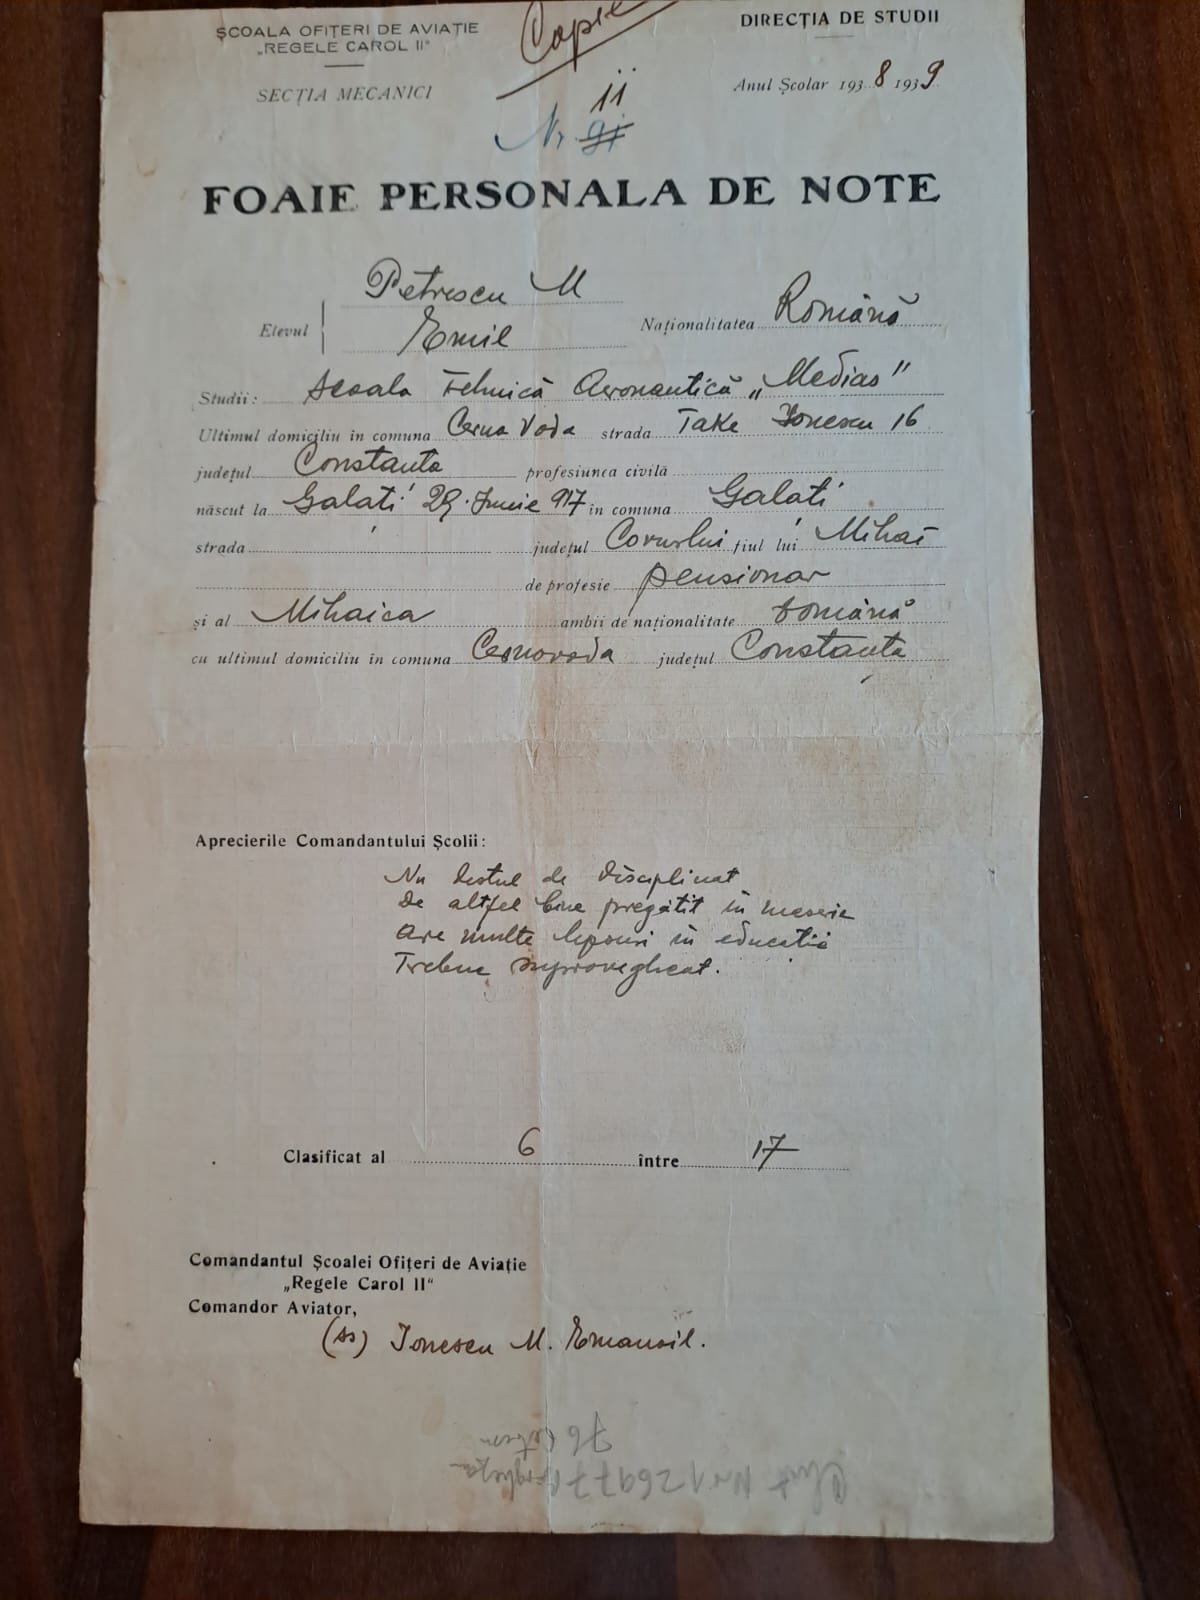 ȘCOALA OFIȚERI DE AVIAȚIE
„REGELE CAROL II"
SECȚIA MECANICI
Copie
DIRECȚIA DE STUDII
Anul Școlar 1938 1939
11
Nr. 91
FOAIE PERSONALA DE NOTE
Petrescu M
Elevul
Emil
Naționalitatea Română
Studii: Școala Tehnică Aeronautică „Medias"
Ultimul domiciliu in comuna Cerna Voda strada Take Ionescu 16
județul Constanta profesiunea civilă
născut la Galați 29 Iunie 917 in comuna Galați
strada județul Covurlui fiul lui Mihai
de profesie pensionar
și al Mihaica ambii de naționalitate română
cu ultimul domiciliu in comuna Cernovoda județul Constanța
Aprecierile Comandantului Școlii:
Nu destul de disciplinat
De altfel bine pregătit în meserie
Are multe lipsuri în educatie
Trebue supravegheat.
Clasificat al 6 între 17
Comandantul Școalei Ofițeri de Aviație
„Regele Carol II"
Comandor Aviator,
(ss) Ionescu M. Emanoil.
76
Nr 126977